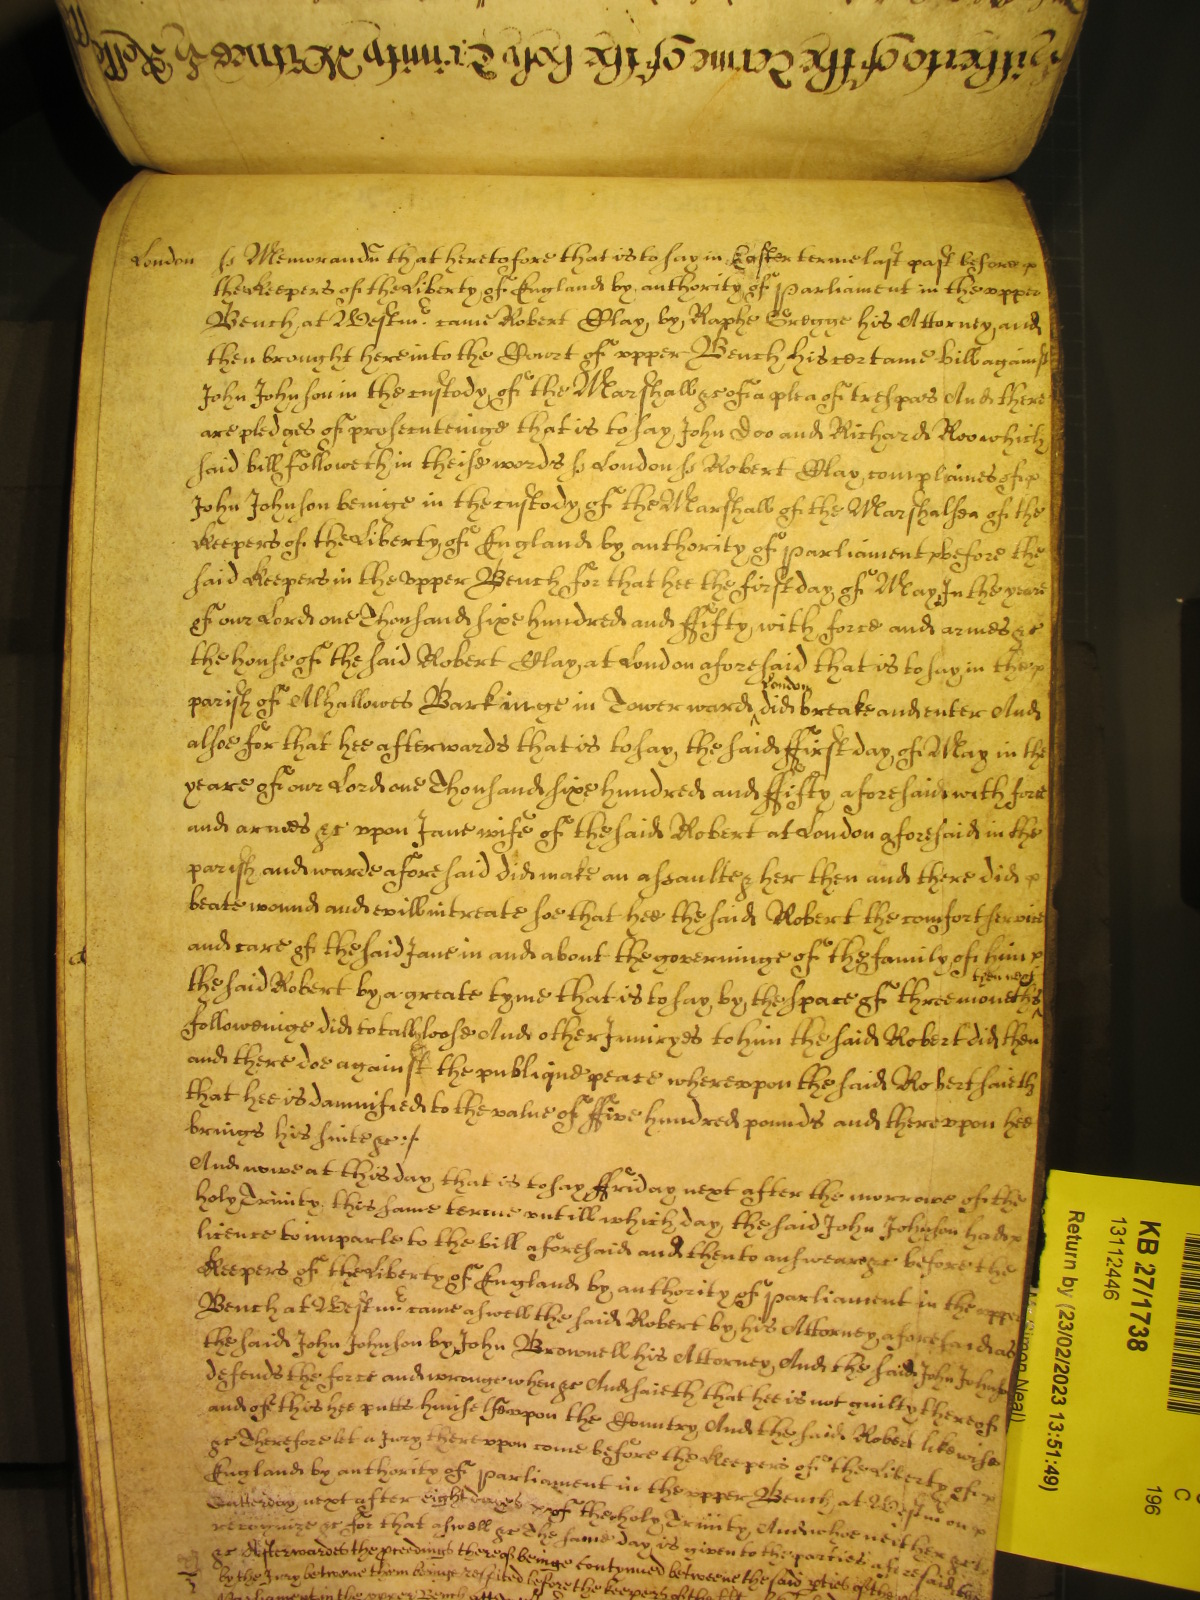 hitherto of the Terme of the holy Trinity Witnes H Rolle
London ss Memorand that heretofore that is to say in Easter terme last past before
the Keepers of the Liberty of England by authority of Parliament in the upper
Bench at Westm came Robert Clay by Raphe Gregge his Attorney and
then brought here into the Court of upper Bench his certaine bill against
John Johnson in the custody of the Marshall &c of a plea of trespas And there
are pledges of prosecuteinge that is to say John Doo and Richard Roo which
said bill followeth in theise words ss London ss Robert Clay complaines of
John Johnson beinge in the custody of the Marshall of the Marshalsea of the
Keepers of the Liberty of England by authority of Parliament before the
said Keepers in the Upper Bench for that hee the first day of May In the yeare
of our Lord one Thousand sixe hundred and ffifty with force and armes &c
the house of the said Robert Clay at London aforesaid that is to say in the
parish of Alhallowes Barkinge in Tower ward London did breake and enter And
alsoe for that hee afterwards that is to say the said ffirst day of May in the
yeare of our Lord one Thousand sixe hundred and ffifty aforesaid with force
and armes &c upon Jane wife of the said Robert at London aforesaid in the
parish and warde aforesaid did make an assault & her then and there did
beate wound and evill intreate soe that hee the said Robert the comfort service
and care of the said Jane in and about the governinge of the family of him
the said Robert by a greate tyme that is to say by the space of three moneths then next
followeinge did totally loose And other Iniuryes to him the said Robert did then
and there doe against the publique peace whereupon the said Robert saieth
that hee is damnified to the value of ffive hundred pounds and thereupon hee
brings his suite &c
And nowe at this day that is to say ffriday next after the morrowe of the
holy Trinity this same terme untill which day the said John Johnson had
licence to imparle to the bill aforesaid and then to answeare &c before the
Keepers of the Liberty of England by authority of Parliament in the upper
Bench at Westm came aswell the said Robert by his Attorney aforesaid as
the said John Johnson by John Brownell his Attorney And the said John Johnson
defends the force and wronge when &c And saieth that hee is not guilty thereof
and of this hee putts himselfe upon the Country And the said Robert likewise
&c Therefore let a Jury thereupon come before the Keepers of the Liberty of
England by authority of Parliament in the upper Bench at Westm on
Satterday next after eight dayes of the holy Trinity And whoe neither &c
recognize &c for that aswell &c The same day is given to the parties aforesaid
&c Afterwardes the pceedings thereof beinge contynued betweene the said pties of the
by the Jury betweene them beinge respited before the keepers of the
Parliament in the upper Bench
KB 27/1738
13112446
Return by (23/02/2023 13:51:49)
Neal)
C
196